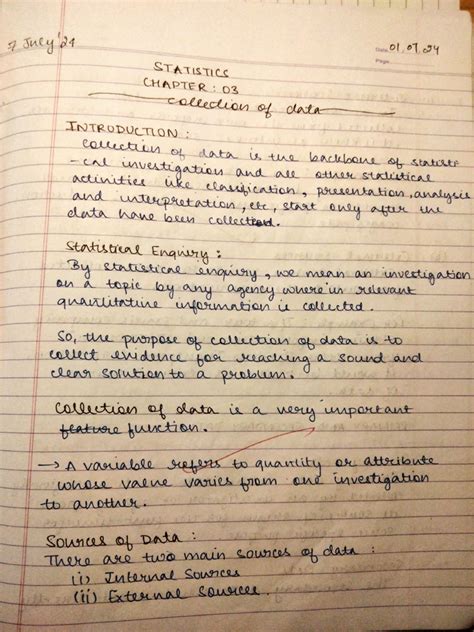 7 July '24
Date 01.07.24
Page
STATISTICS
CHAPTER : 03
collection of data
INTRODUCTION :
Collection of data is the backbone of statisti
-cal investigation and all other statistical
activities like classification, presentation, analysis
and interpretation, etc, start only after the
data have been collected.
Statistical Enquiry :
By statistical enquiry, we mean an investigation
on a topic by any agency where in relevant
quantitative information is collected.
So, the purpose of collection of data is to
collect evidence for reaching a sound and
clear solution to a problem.
Collection of data is a very important
feature function.
→ A variable refers to quantity or attribute
whose value varies from one investigation
to another.
Sources of Data :
There are two main sources of data :
(i) Internal Sources
(ii) External Sources